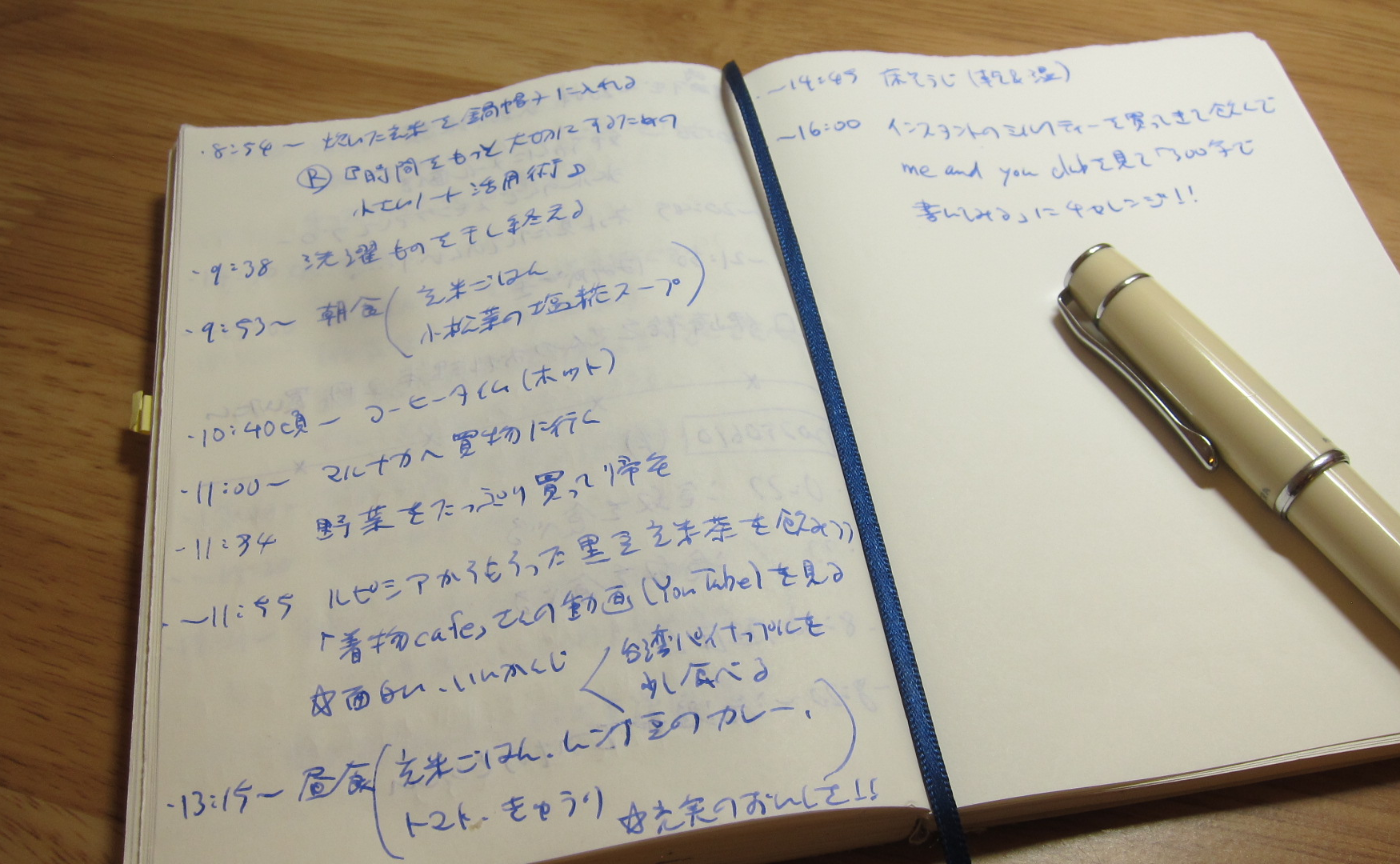 ・8:54〜 炊いた玄米を鍋帽子に入れる
Ⓡ『時間をもっと大切にするための
小さいノート活用術』
・9:38 洗濯ものを干し終える
・9:53〜 朝食(玄米ごはん
小松菜の塩糀スープ)
・10:40頃〜 コーヒータイム(ホット)
・11:00〜 マルナカへ買物に行く
・11:34 野菜をたっぷり買って帰宅
・〜11:55 ルピシアからもらった黒豆玄米茶を飲みつつ
「着物cafe」さんの動画(YouTube)を見る
☆面白い、いいかんじ < 台湾パイナップルを
少し食べる
・13:15〜 昼食(玄米ごはん、ムング豆のカレー、
トマト、きゅうり) ☆充実のおいしさ!!
・〜14:45 床そうじ(乾&湿)
〜16:00 インスタントのミルクティーを買ってきて飲んで
me and you clubを見て「300字で
書いてみる」にチャレンジ!!